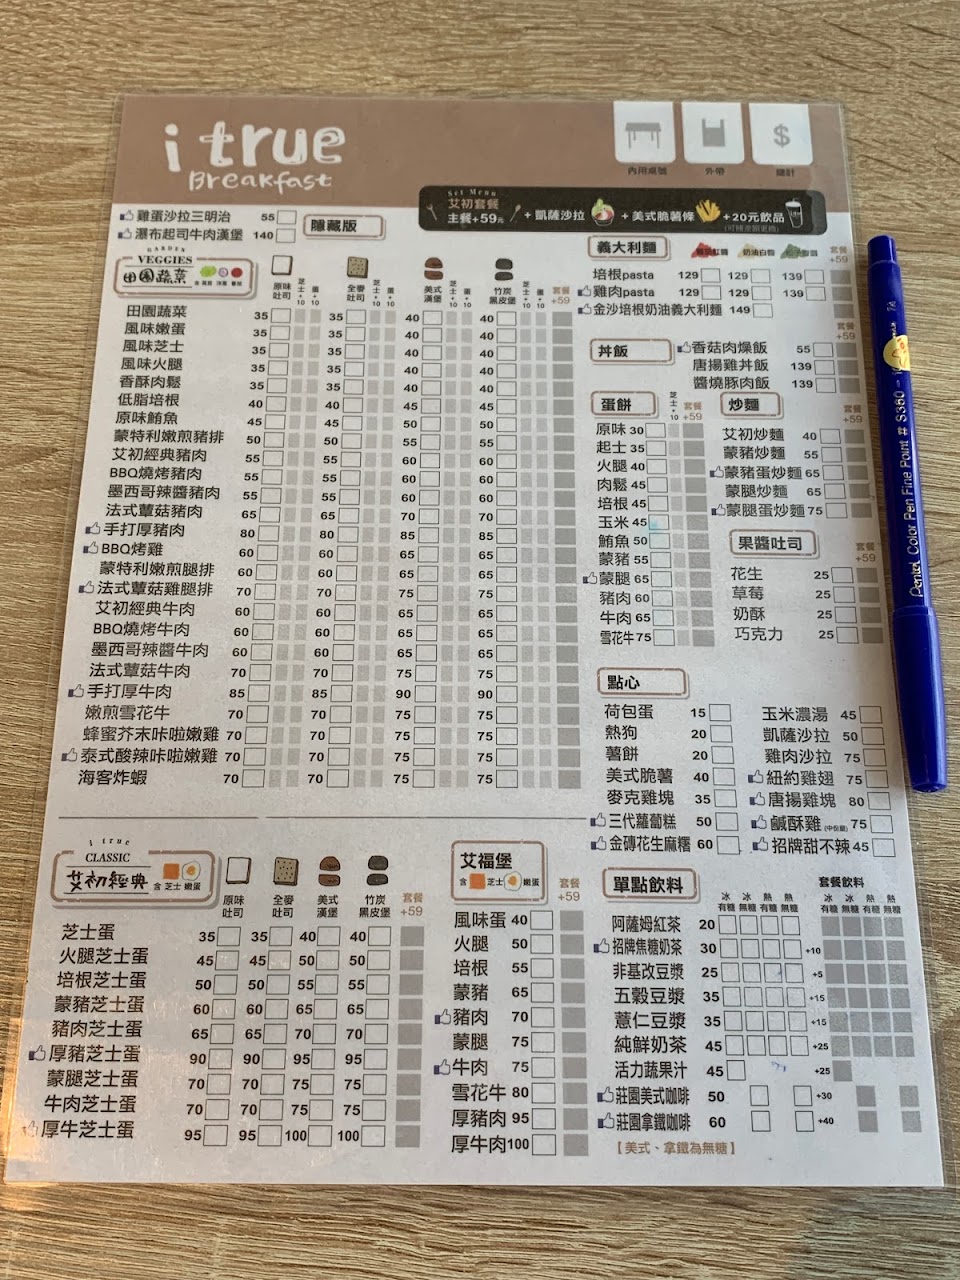 i true
Breakfast
內用桌號
外帶
$
總計
Set Menu
艾初套餐
主餐+59元
+ 凱薩沙拉
+ 美式脆薯條
+20元飲品
雞蛋沙拉三明治 55
瀑布起司牛肉漢堡 140
隱藏版
GARDEN
VEGGIES
田園蔬菜
原味吐司 芝士+10 蛋+10 全麥吐司 芝士+10 蛋+10 美式漢堡 芝士+10 蛋+10 竹炭黑皮堡 芝士+10 蛋+10 套餐+59
田園蔬菜 35 35 40 40
風味嫩蛋 35 35 40 40
風味芝士 35 35 40 40
風味火腿 35 35 40 40
香酥肉鬆 35 35 40 40
低脂培根 40 40 45 45
原味鮪魚 45 45 50 50
蒙特利嫩煎豬排 50 50 55 55
艾初經典豬肉 55 55 60 60
BBQ燒烤豬肉 55 55 60 60
墨西哥辣醬豬肉 55 55 60 60
法式蕈菇豬肉 65 65 70 70
手打厚豬肉 80 80 85 85
BBQ烤雞 60 60 65 65
蒙特利嫩煎腿排 60 60 65 65
法式蕈菇雞腿排 70 70 75 75
艾初經典牛肉 60 60 65 65
BBQ燒烤牛肉 60 60 65 65
墨西哥辣醬牛肉 60 60 65 65
法式蕈菇牛肉 70 70 75 75
手打厚牛肉 85 85 90 90
嫩煎雪花牛 70 70 75 75
蜂蜜芥末咔啦嫩雞 70 70 75 75
泰式酸辣咔啦嫩雞 70 70 75 75
海客炸蝦 70 70 75 75
義大利麵 奶油白醬 套餐+59
培根pasta 129 129 139
雞肉pasta 129 129 139
金沙培根奶油義大利麵 149
丼飯 套餐+59
香菇肉燥飯 55
唐揚雞丼飯 139
醬燒豚肉飯 139
蛋餅 芝士+10 套餐+59
原味 30
起士 35
火腿 40
肉鬆 45
培根 45
玉米 45
鮪魚 50
蒙豬 55
蒙腿 65
豬肉 60
牛肉 65
雪花牛 75
炒麵 套餐+59
艾初炒麵 40
蒙豬炒麵 55
蒙豬蛋炒麵 65
蒙腿炒麵 65
蒙腿蛋炒麵 75
果醬吐司 套餐+59
花生 25
草莓 25
奶酥 25
巧克力 25
點心
荷包蛋 15
熱狗 20
薯餅 20
美式脆薯 40
麥克雞塊 35
三代蘿蔔糕 50
金磚花生麻糬 60
玉米濃湯 45
凱薩沙拉 50
雞肉沙拉 75
紐約雞翅 75
唐揚雞塊 80
鹹酥雞 75
招牌甜不辣 45
i true
CLASSIC
艾初經典
含 芝士 嫩蛋
原味吐司 全麥吐司 美式漢堡 竹炭黑皮堡 套餐+59
芝士蛋 35 35 40 40
火腿芝士蛋 45 45 50 50
培根芝士蛋 50 50 55 55
蒙豬芝士蛋 60 60 65 65
豬肉芝士蛋 65 65 70 70
厚豬芝士蛋 90 90 95 95
蒙腿芝士蛋 70 70 75 75
牛肉芝士蛋 70 70 75 75
厚牛芝士蛋 95 95 100 100
艾福堡
含 芝士 嫩蛋
套餐+59
風味蛋 40
火腿 50
培根 55
蒙豬 65
豬肉 70
蒙腿 75
牛肉 75
雪花牛 80
厚豬肉 95
厚牛肉 100
單點飲料 冰有糖 冰無糖 熱有糖 熱無糖
套餐飲料 冰有糖 冰無糖 熱有糖 熱無糖
阿薩姆紅茶 20
招牌焦糖奶茶 30 +10
非基改豆漿 25 +5
五穀豆漿 35 +15
薏仁豆漿 35 +15
純鮮奶茶 45 +25
活力蔬果汁 45 +25
莊園美式咖啡 50 +30
莊園拿鐵咖啡 60 +40
【美式、拿鐵為無糖】
Pentel Color Pen Fine Point # S360